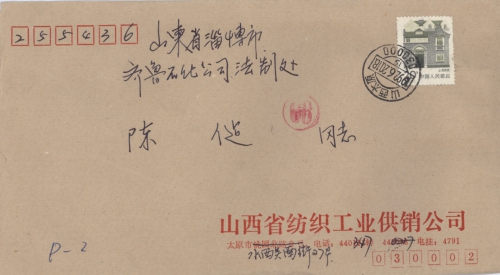 255436
山東省淄博市
齐鲁石化公司法制处
陈 同志
中国人民邮政
山西太原
030000
山西省纺织工业供销公司
太原市 电话:440 电挂:4791
030002
P-2